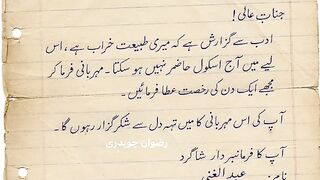 جنابِ عالی!
ادب سے گزارش ہے کہ میری طبیعت خراب ہے، اس
لیے میں آج اسکول حاضر نہیں ہو سکتا۔ مہربانی فرما کر
مجھے ایک دن کی رخصت عطا فرمائیں۔
آپ کی اس مہربانی کا میں تہہ دل سے شکر گزار رہوں گا۔
رضوان چوہدری
آپ کا فرمانبردار شاگرد
عبدالغنی